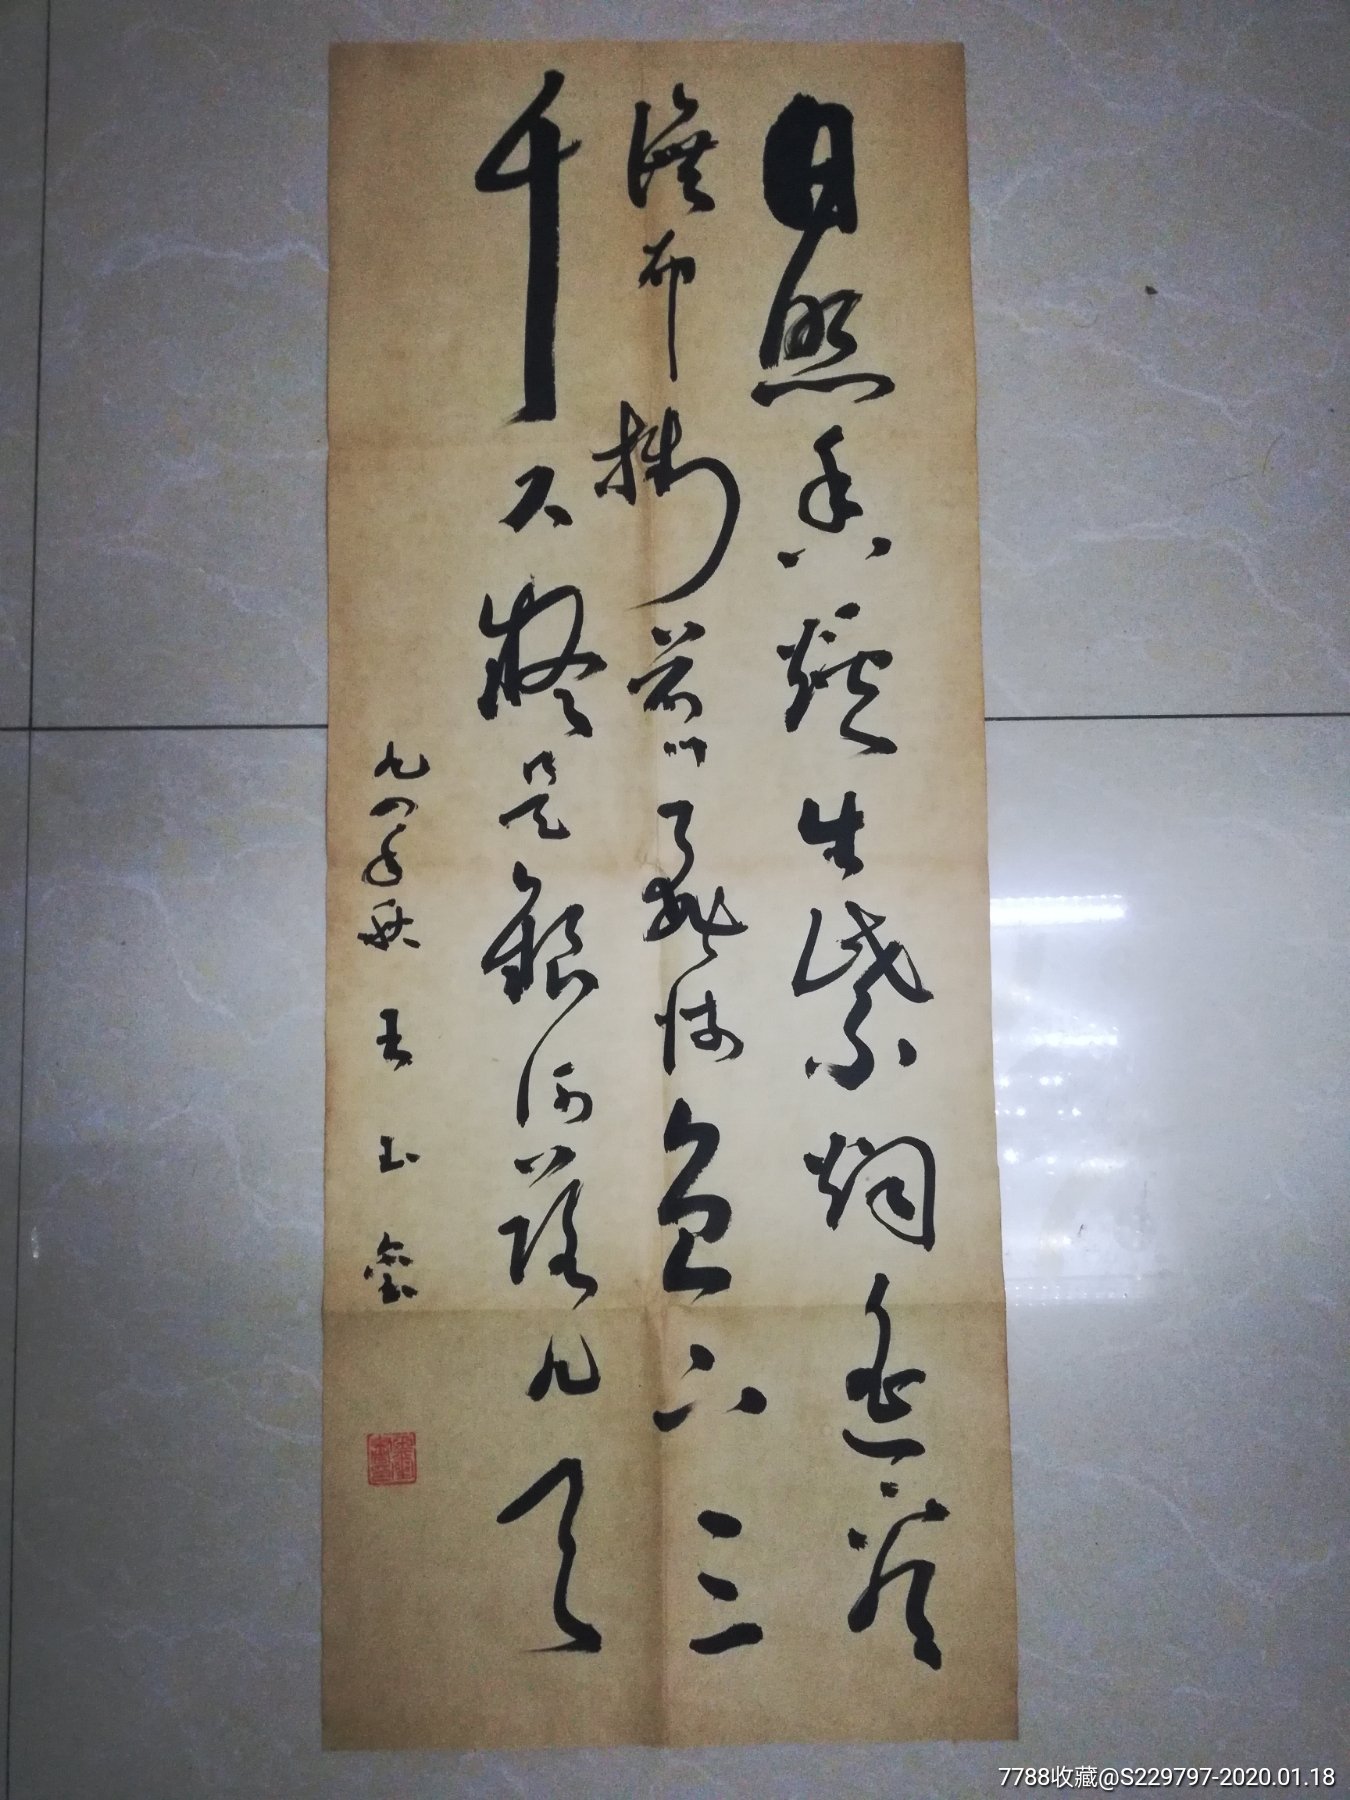 日照香爐生紫烟遥看
瀑布掛前川飛流直下三
千尺疑是銀河落九天
九四年秋 王玉玺
7788收藏@S229797-2020.01.18